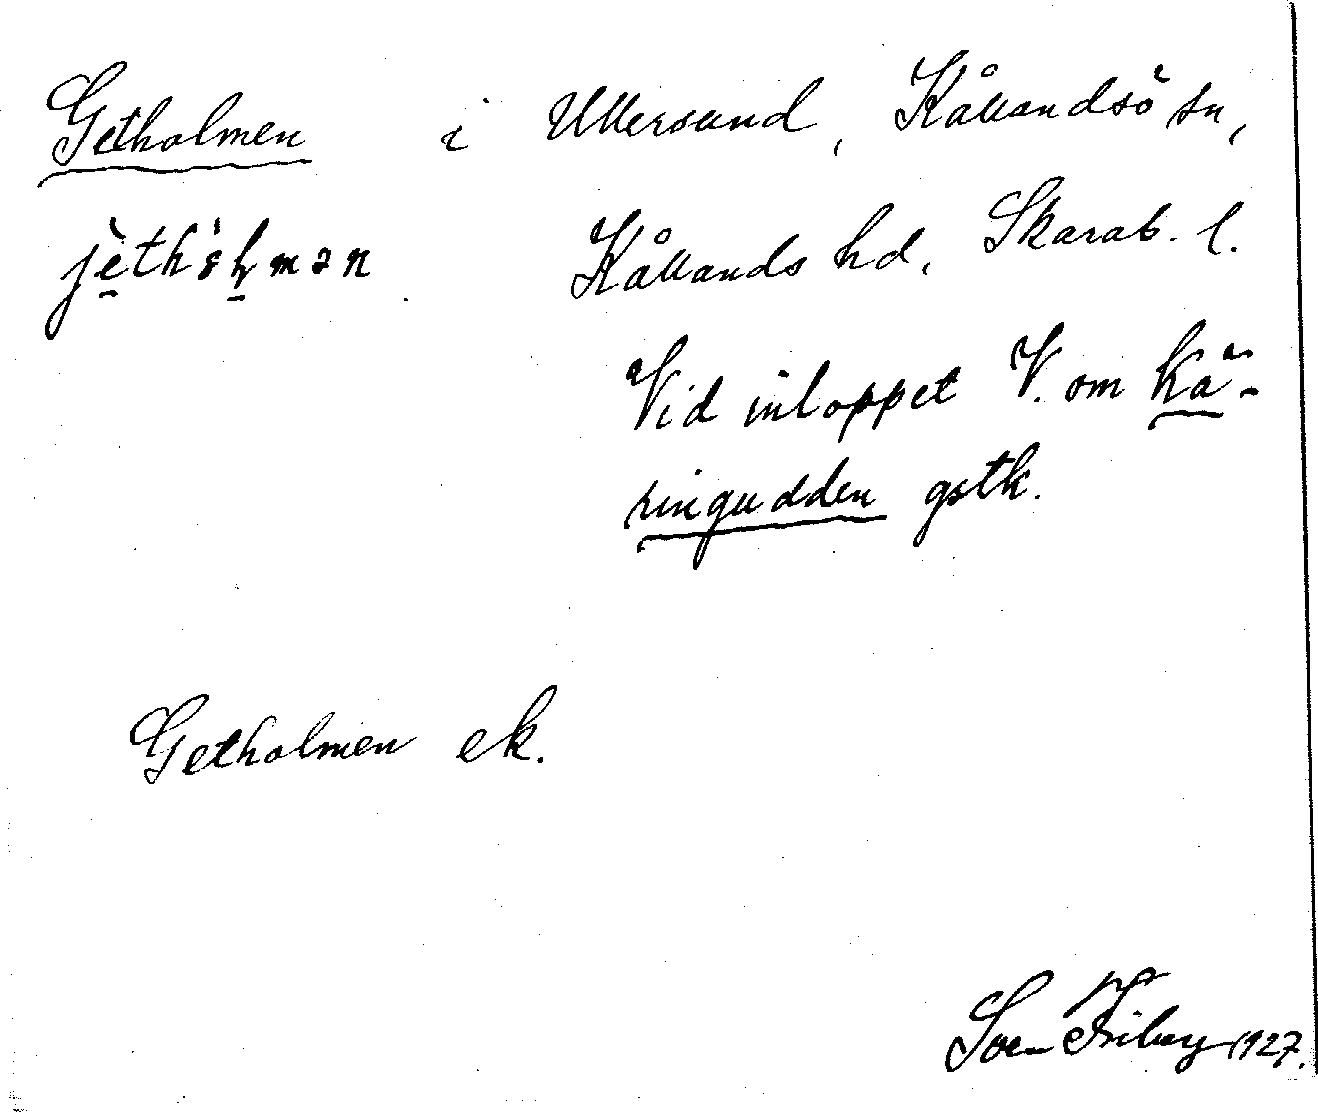 Getholmen i Ullersund, Kållandsö sn,
Kållands hd, Skarab. l.
Vid inloppet V. om Kä-
ringudden gstk.
Getholmen ek.
Sven Friberg 1927.